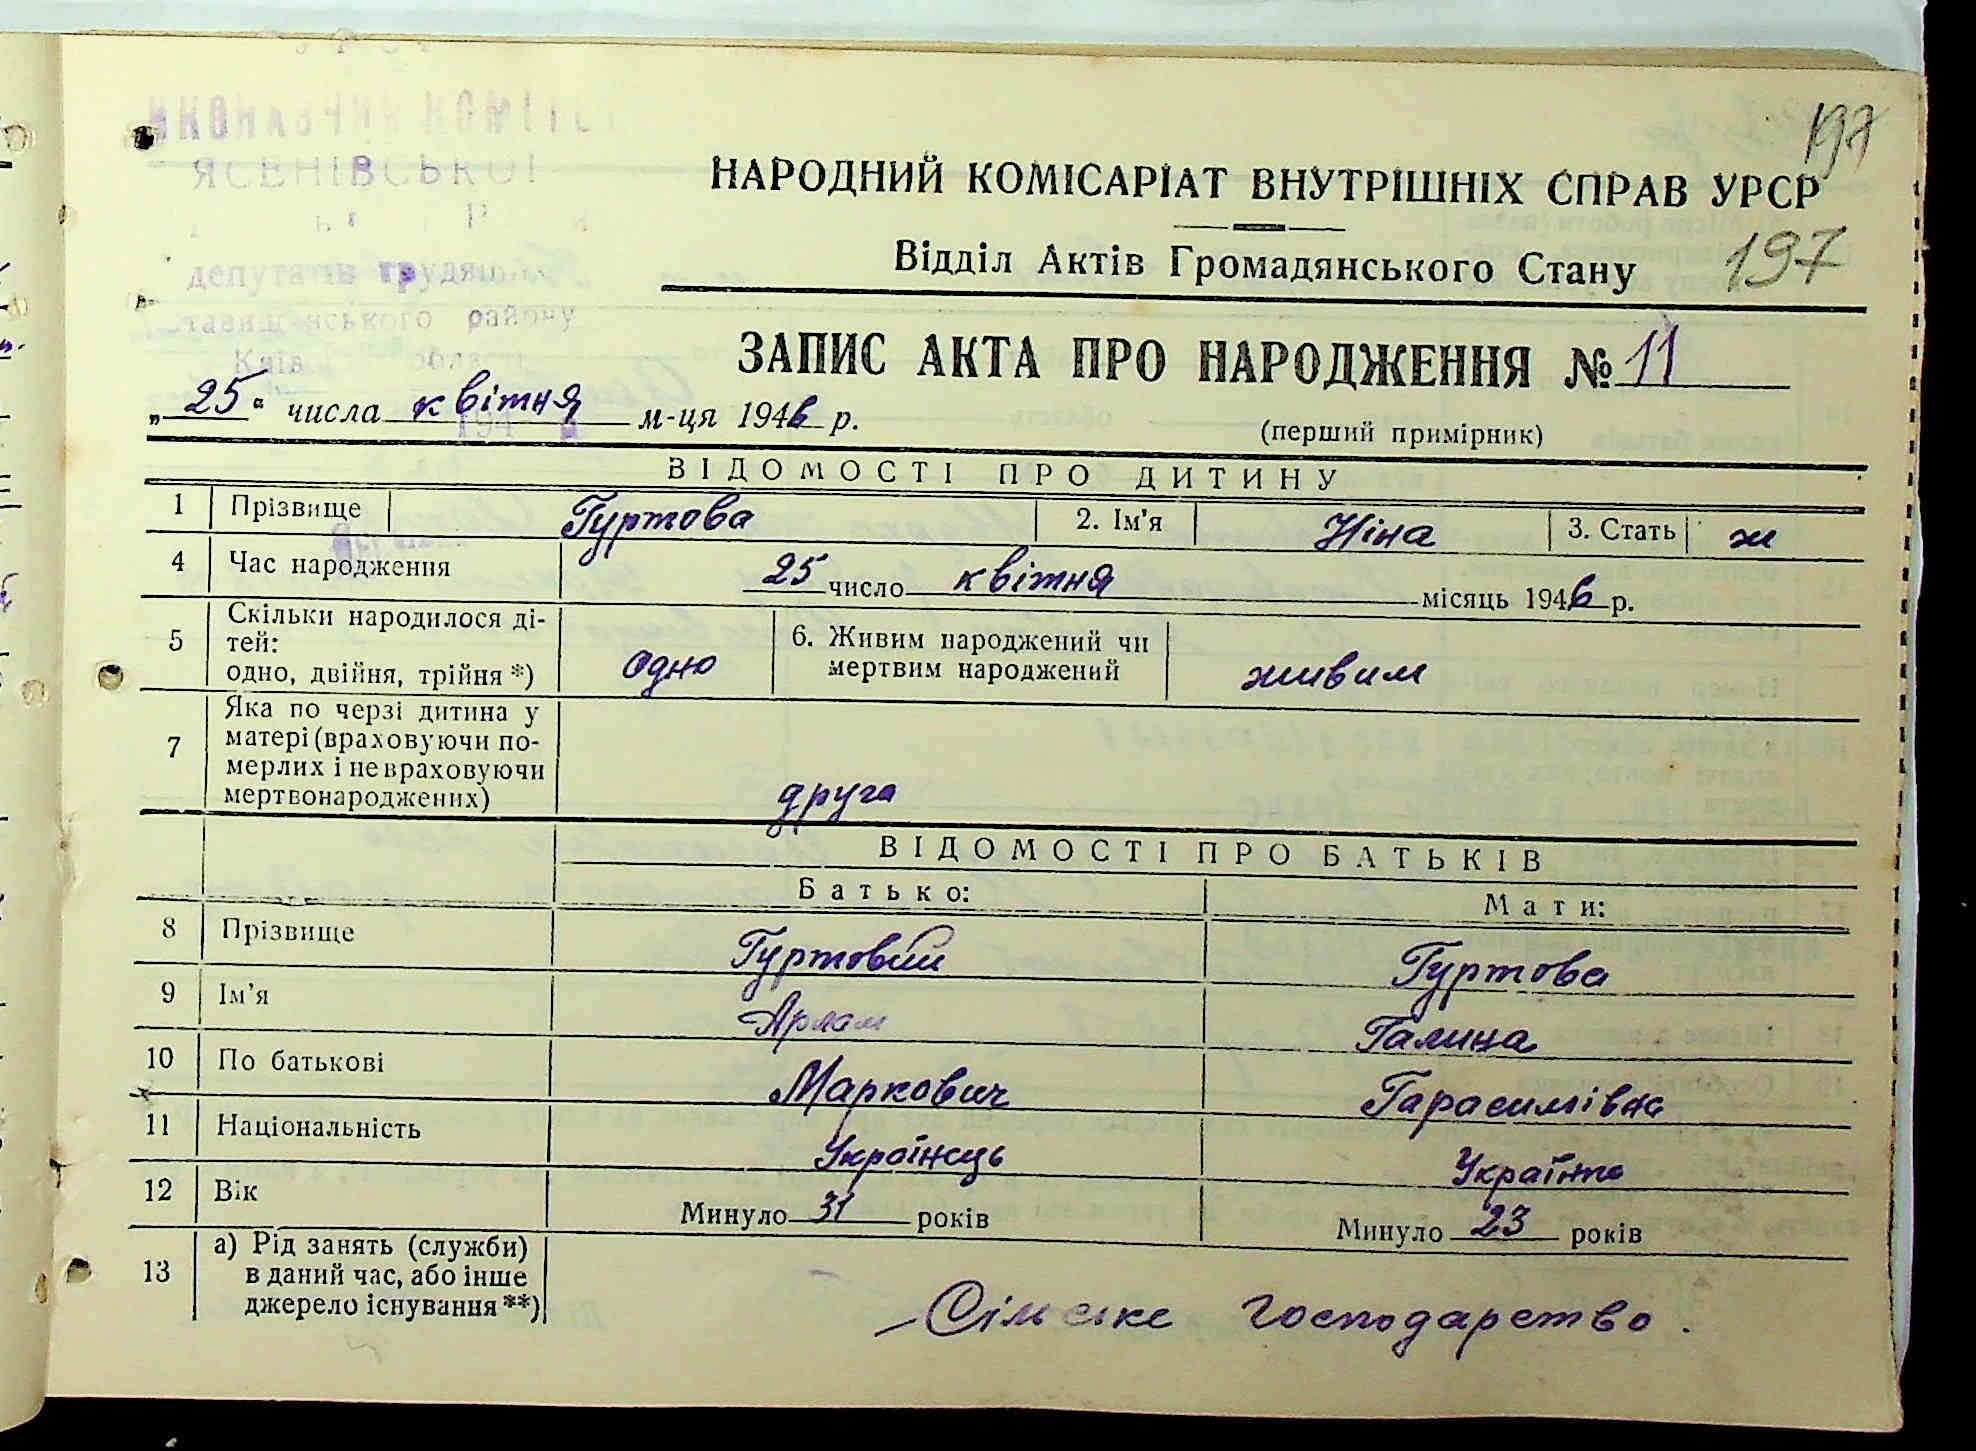 197
ЯСЕНІВСЬКОЇ
НАРОДНИЙ КОМІСАРІАТ ВНУТРІШНІХ СПРАВ УРСР
депутатів трудящих
Відділ Актів Громадянського Стану 197
району
ЗАПИС АКТА ПРО НАРОДЖЕННЯ № 11
„ 25 “ числа квітня м-ця 1946 р.
(перший примірник)
ВІДОМОСТІ ПРО ДИТИНУ
1 Прізвище Гуртова 2. Ім’я Ніна 3. Стать ж
4 Час народження 25 число квітня місяць 1946 р.
5 Скільки народилося ді-
тей:
одно, двійня, трійня *) одно 6. Живим народжений чи
мертвим народжений живим
7 Яка по черзі дитина у
матері (враховуючи по-
мерлих і невраховуючи
мертвонароджених) друга
ВІДОМОСТІ ПРО БАТЬКІВ
Батько: Мати:
8 Прізвище Гуртовий Гуртова
9 Ім’я Арлам Галина
10 По батькові Маркович Гарасимівна
11 Національність Українець Українка
12 Вік Минуло 31 років Минуло 23 років
13 а) Рід занять (служби)
в даний час, або інше
джерело існування **)
Сільське господарство.